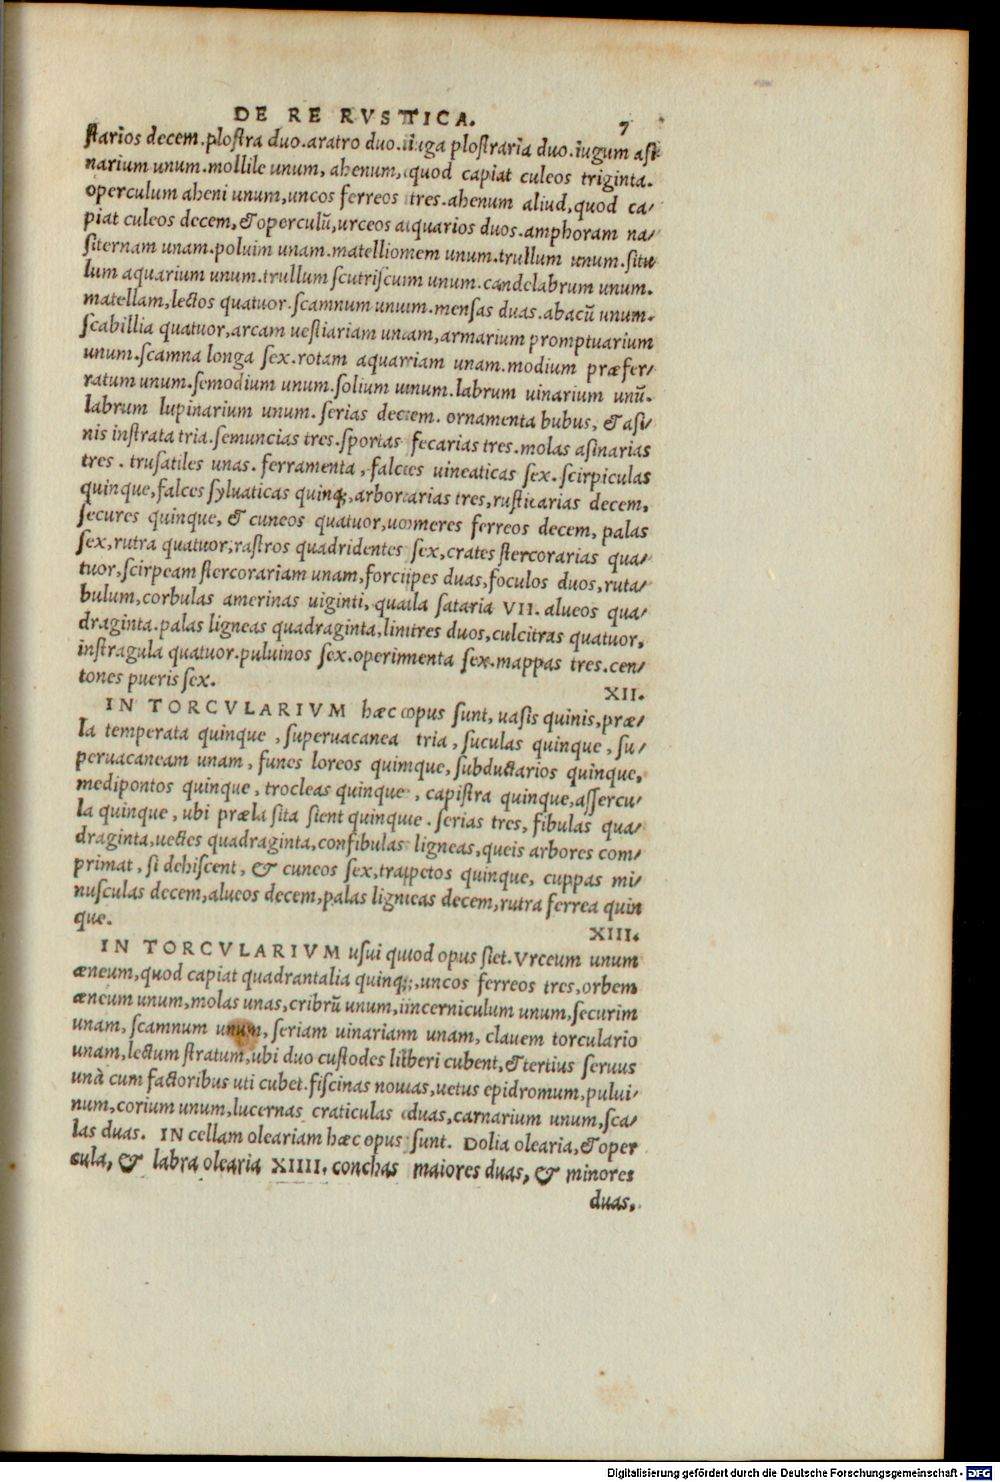 DE RE RVSTICA. 7
starios decem.plostra duo.aratro duo.iuga plostraria duo.iugum asi
narium unum.mollile unum, ahenum, quod capiat culeos triginta.
operculum aheni unum,uncos ferreos tres.ahenum aliud,quod ca/
piat culeos decem,& operculū,urceos aquarios duos.amphoram na/
siternam unam.poluim unam.matellionem unum.trullum unum.situ
lum aquarium unum.trullum scutriscum unum.candelabrum unum.
matellam,lectos quatuor.scamnum unum.mensas duas.abacū unum.
scabillia quatuor,arcam uestiariam unam,armarium promptuarium
unum.scamna longa sex.rotam aquariam unam.modium præfer/
ratum unum.semodium unum.solium unum.labrum uinarium unū.
labrum lupinarium unum. serias decem. ornamenta bubus, & asi/
nis instrata tria.semuncias tres.sportas fecarias tres.molas asinarias
tres. trusatiles unas. ferramenta, falces uineaticas sex.scirpiculas
quinque,falces syluaticas quinq;,arborarias tres,rusticarias decem,
secures quinque, & cuneos quatuor,uomeres ferreos decem, palas
sex,rutra quatuor,rastros quadridentes sex,crates stercorarias qua/
tuor,scirpeam stercorariam unam,forcipes duas,foculos duos,ruta/
bulum,corbulas amerinas uiginti, quala sataria VII. alueos qua/
draginta.palas ligneas quadraginta,lintres duos,culcitras quatuor,
instragula quatuor.puluinos sex.operimenta sex.mappas tres.cen/
tones pueris sex.
XII.
IN TORCVLARIVM hæc opus sunt, uasis quinis,præ/
la temperata quinque, superuacanea tria, suculas quinque, su/
peruacaneam unam, funes loreos quinque, subductarios quinque,
medipontos quinque, trocleas quinque, capistra quinque,assercu/
la quinque, ubi præla sita sient quinque. serias tres, fibulas qua/
draginta,uectes quadraginta,confibulas ligneas,queis arbores com/
primat, si dehiscent, & cuneos sex,trapetos quinque, cuppas mi/
nusculas decem,alueos decem,palas ligneas decem,rutra ferrea quin
que.
XIII.
IN TORCVLARIVM usui quod opus siet.Vrceum unum
æneum,quod capiat quadrantalia quinq;,uncos ferreos tres,orbem
æneum unum,molas unas,cribrū unum,incerniculum unum,securim
unam, scamnum unum, seriam uinariam unam, clauem torculario
unam,lectum stratum,ubi duo custodes liberi cubent,& tertius seruus
unà cum factoribus uti cubet.fiscinas nouas,uetus epidromum,pului/
num,corium unum,lucernas craticulas duas,carnarium unum,sca/
las duas. IN cellam oleariam hæc opus sunt. Dolia olearia,& oper
cula, & labra olearia XIIII. conchas maiores duas, & minores
duas,
Digitalisierung gefördert durch die Deutsche Forschungsgemeinschaft - DFG